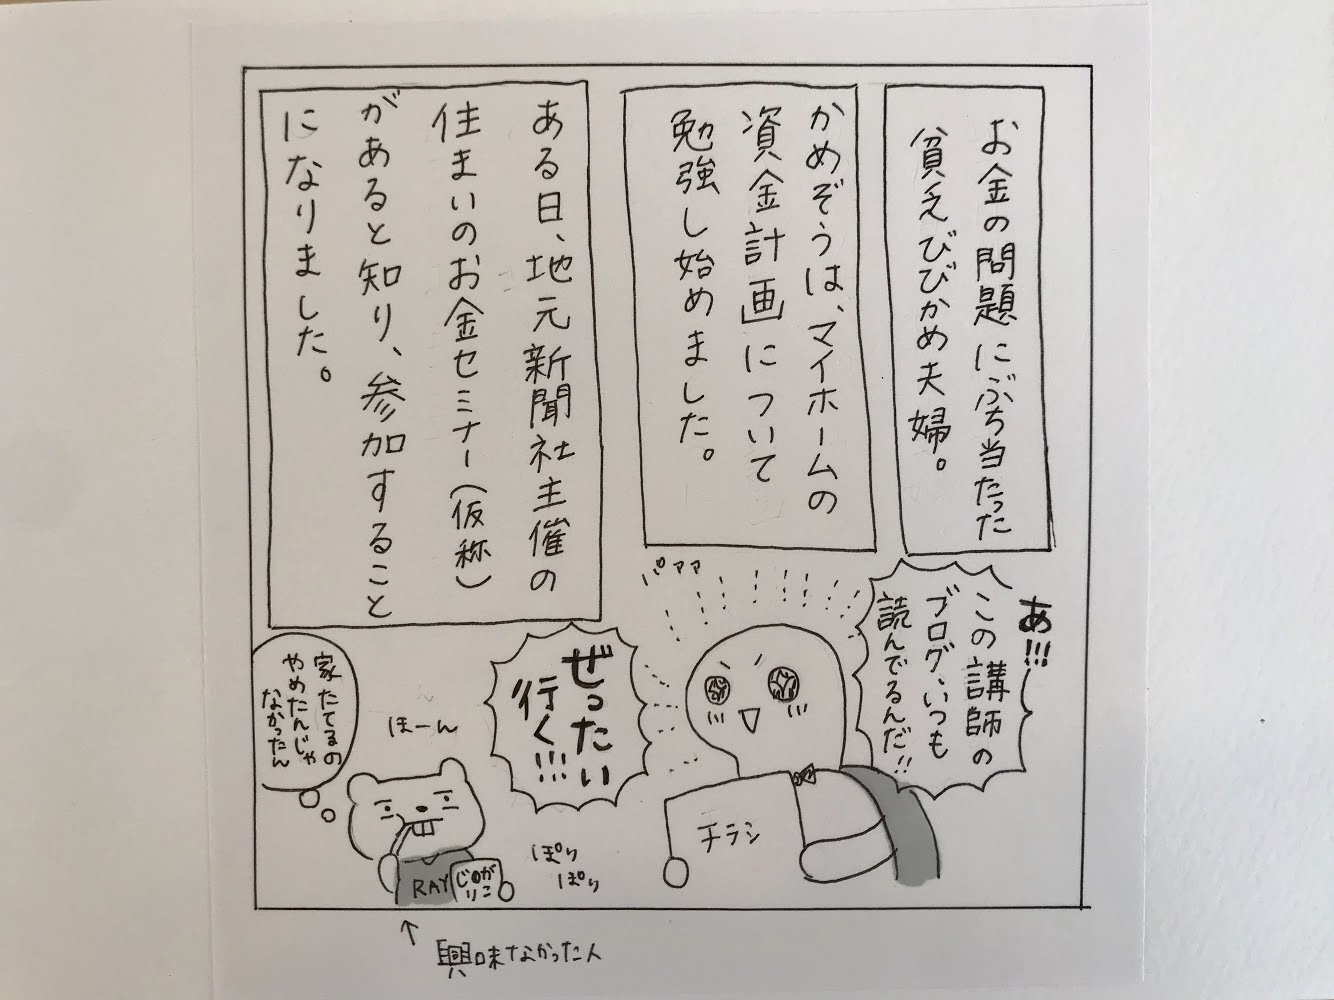 お金の問題にぶち当たった
貧乏びびかめ夫婦。
かめぞうは、マイホームの
資金計画について
勉強し始めました。
ある日、地元新聞社主催の
住まいのお金セミナー(仮称)
があると知り、参加すること
になりました。
あ!!!
この講師の
ブログ、いつも
読んでるんだ!!
パァァ
ぜったい
行く!!!
チラシ
ほーん
家たてるの
やめたんじゃ
なかったん
ぽり
ぽり
RAY
じゃがりこ
↑
興味なかった人